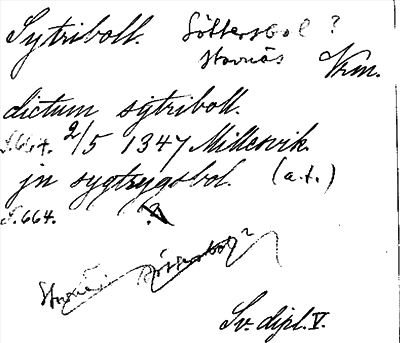 Sytriboll. Söttersbol ?
Stavnäs Vrm.
dictum sytriboll.
S.664. 2/5 1347 Millesvik.
jn sygtrygsbol. (a.f.)
S.664. ?
Stavnäs Söttersbol ?
Sv. dipl. V.